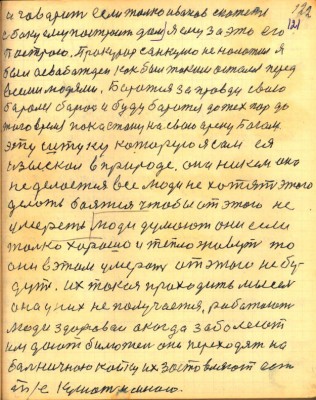 122
и говорит если только иванов скажет
121
я ему за это его
построю. Прокурор санкцию не
я
был освобожден как был таким остался перед
всеми людями. Боротся за правду свою
боролся борюс и буду боротся до тех пор до
того время пока стану на свою
эту штуку которую я сам ея
изыскал в природе. она никем она
не делается все люди не хотят этого
делать боятся чтобы от этого не
умереть люди думают они если
только хорошо и тепло живут то
они в этом умерать от этого не бу-
дут. их такая приходить мысль
она у них не получается, работают
люди здорово а когда заболеют
им дают билютень они переходят на
болничною койку их заставляют есть